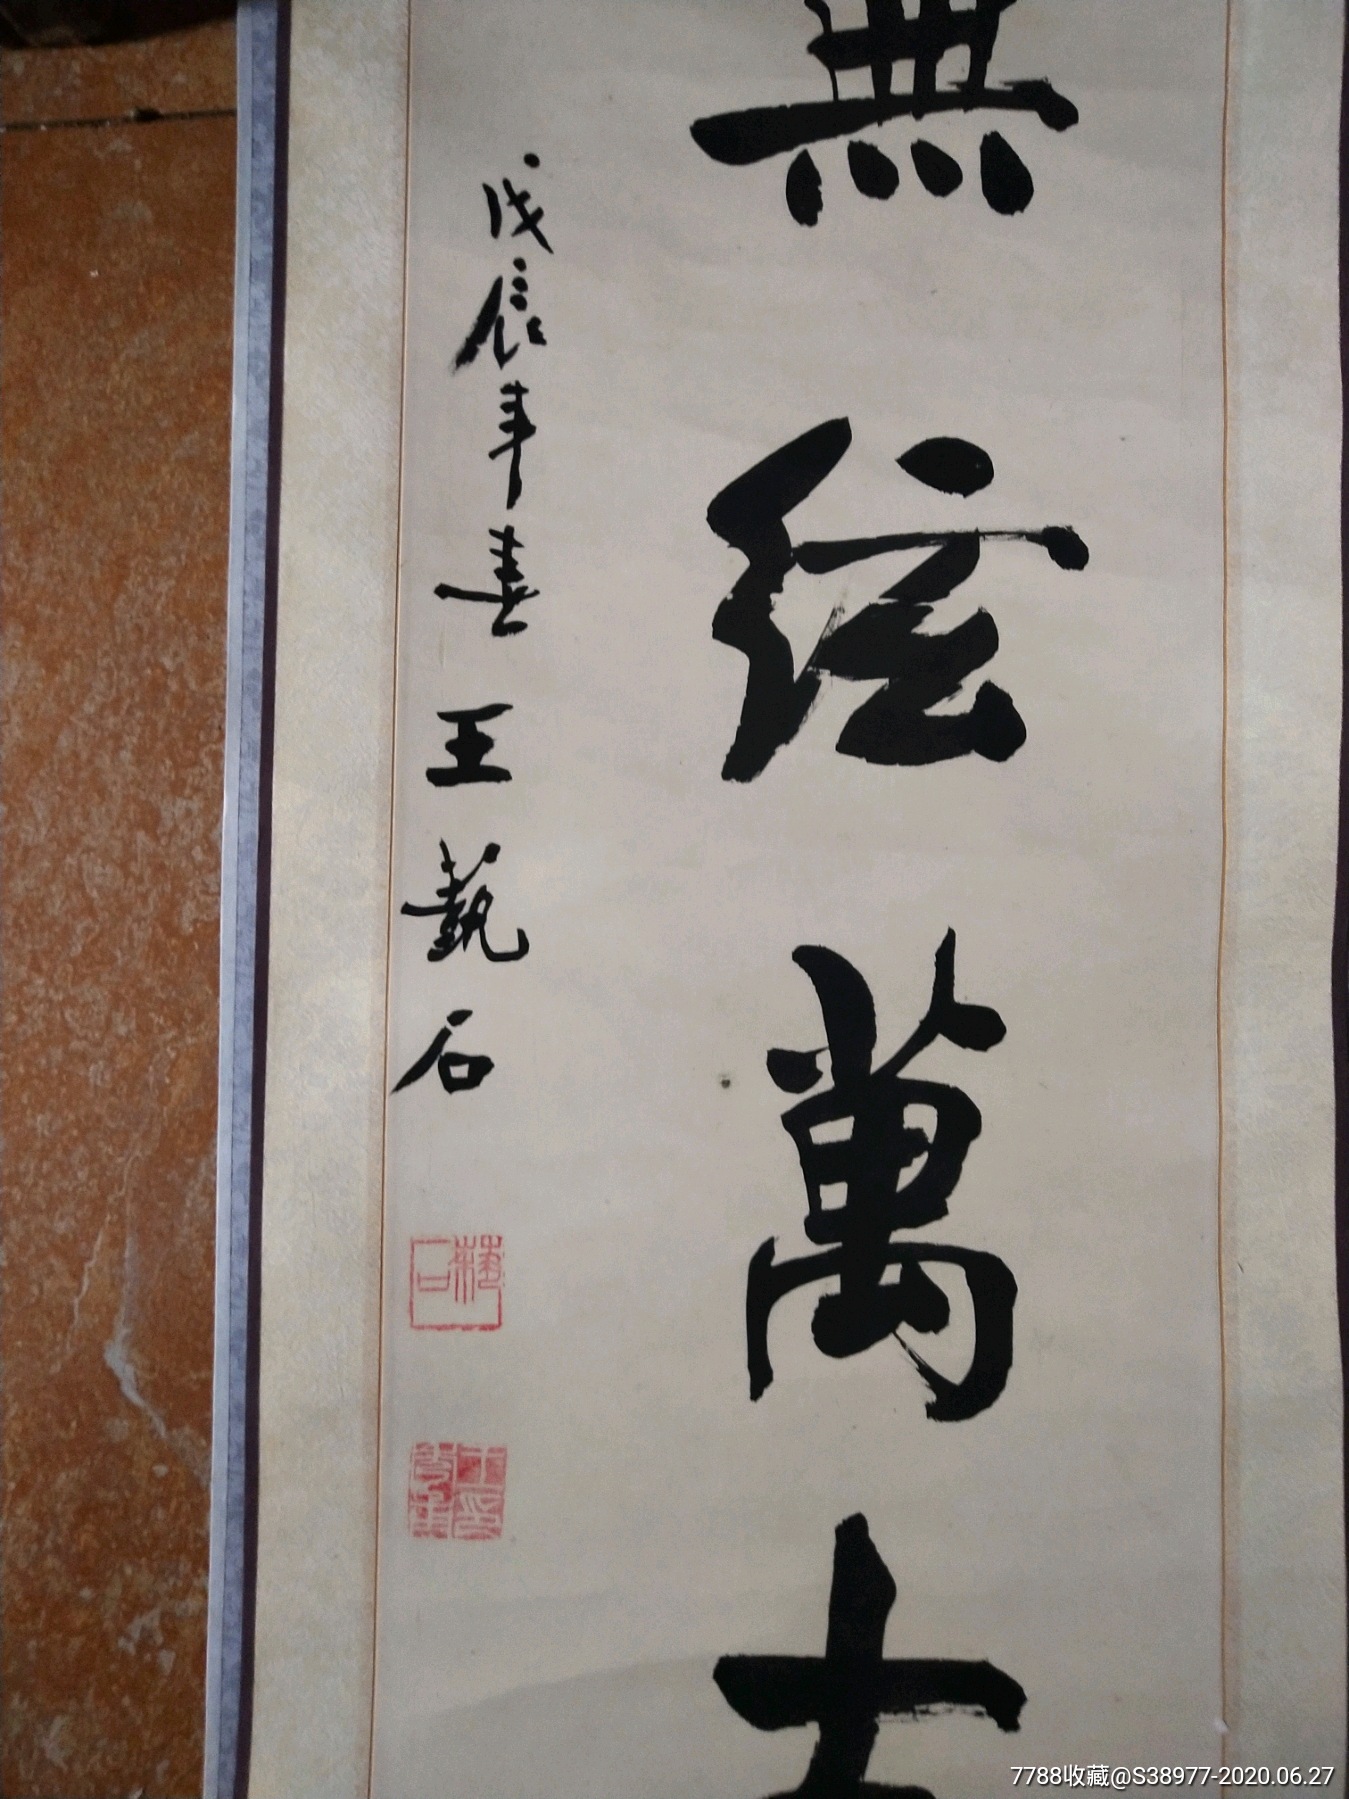 無絃萬古
戊辰年春
王藝石
7788收藏@S38977-2020.06.27